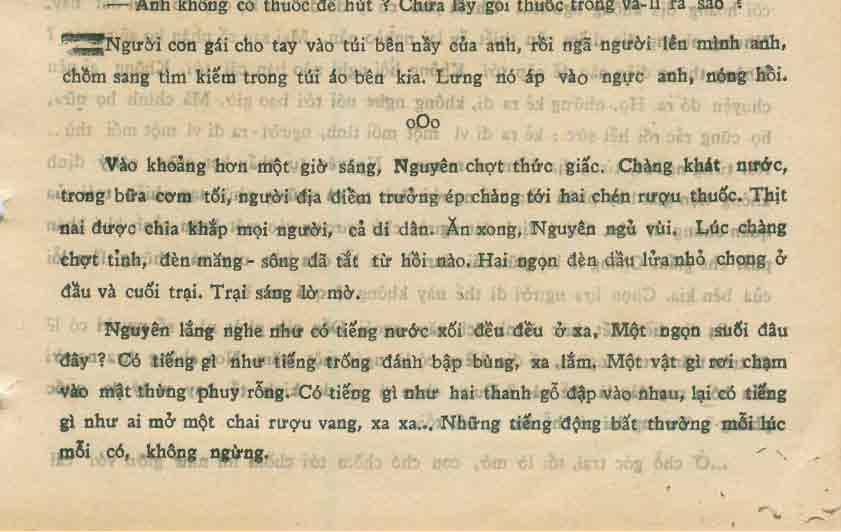 — Anh không có thuốc để hút ? Chưa lấy gói thuốc trong va-li ra sao ?
Người con gái cho tay vào túi bên nầy của anh, rồi ngã người lên mình anh,
chồm sang tìm kiếm trong túi áo bên kia. Lưng nó áp vào ngực anh, nóng hồi.
oOo
Vào khoảng hơn một giờ sáng, Nguyên chợt thức giấc. Chàng khát nước,
trong bữa cơm tối, người địa điểm trưởng ép chàng tới hai chén rượu thuốc. Thịt
nai được chia khắp mọi người, cả di dân. Ăn xong, Nguyên ngủ vùi. Lúc chàng
chợt tỉnh, đèn măng - sông đã tắt từ hồi nào. Hai ngọn đèn dầu lửa nhỏ chong ở
đầu và cuối trại. Trại sáng lờ mờ.
Nguyên lắng nghe như có tiếng nước xối đều đều ở xa. Một ngọn suối đâu
đây ? Có tiếng gì như tiếng trống đánh bập bùng, xa lắm. Một vật gì rơi chạm
vào mặt thùng phuy rỗng. Có tiếng gì như hai thanh gỗ đập vào nhau, lại có tiếng
gì như ai mở một chai rượu vang, xa xa... Những tiếng động bất thường mỗi lúc
mỗi có, không ngừng.